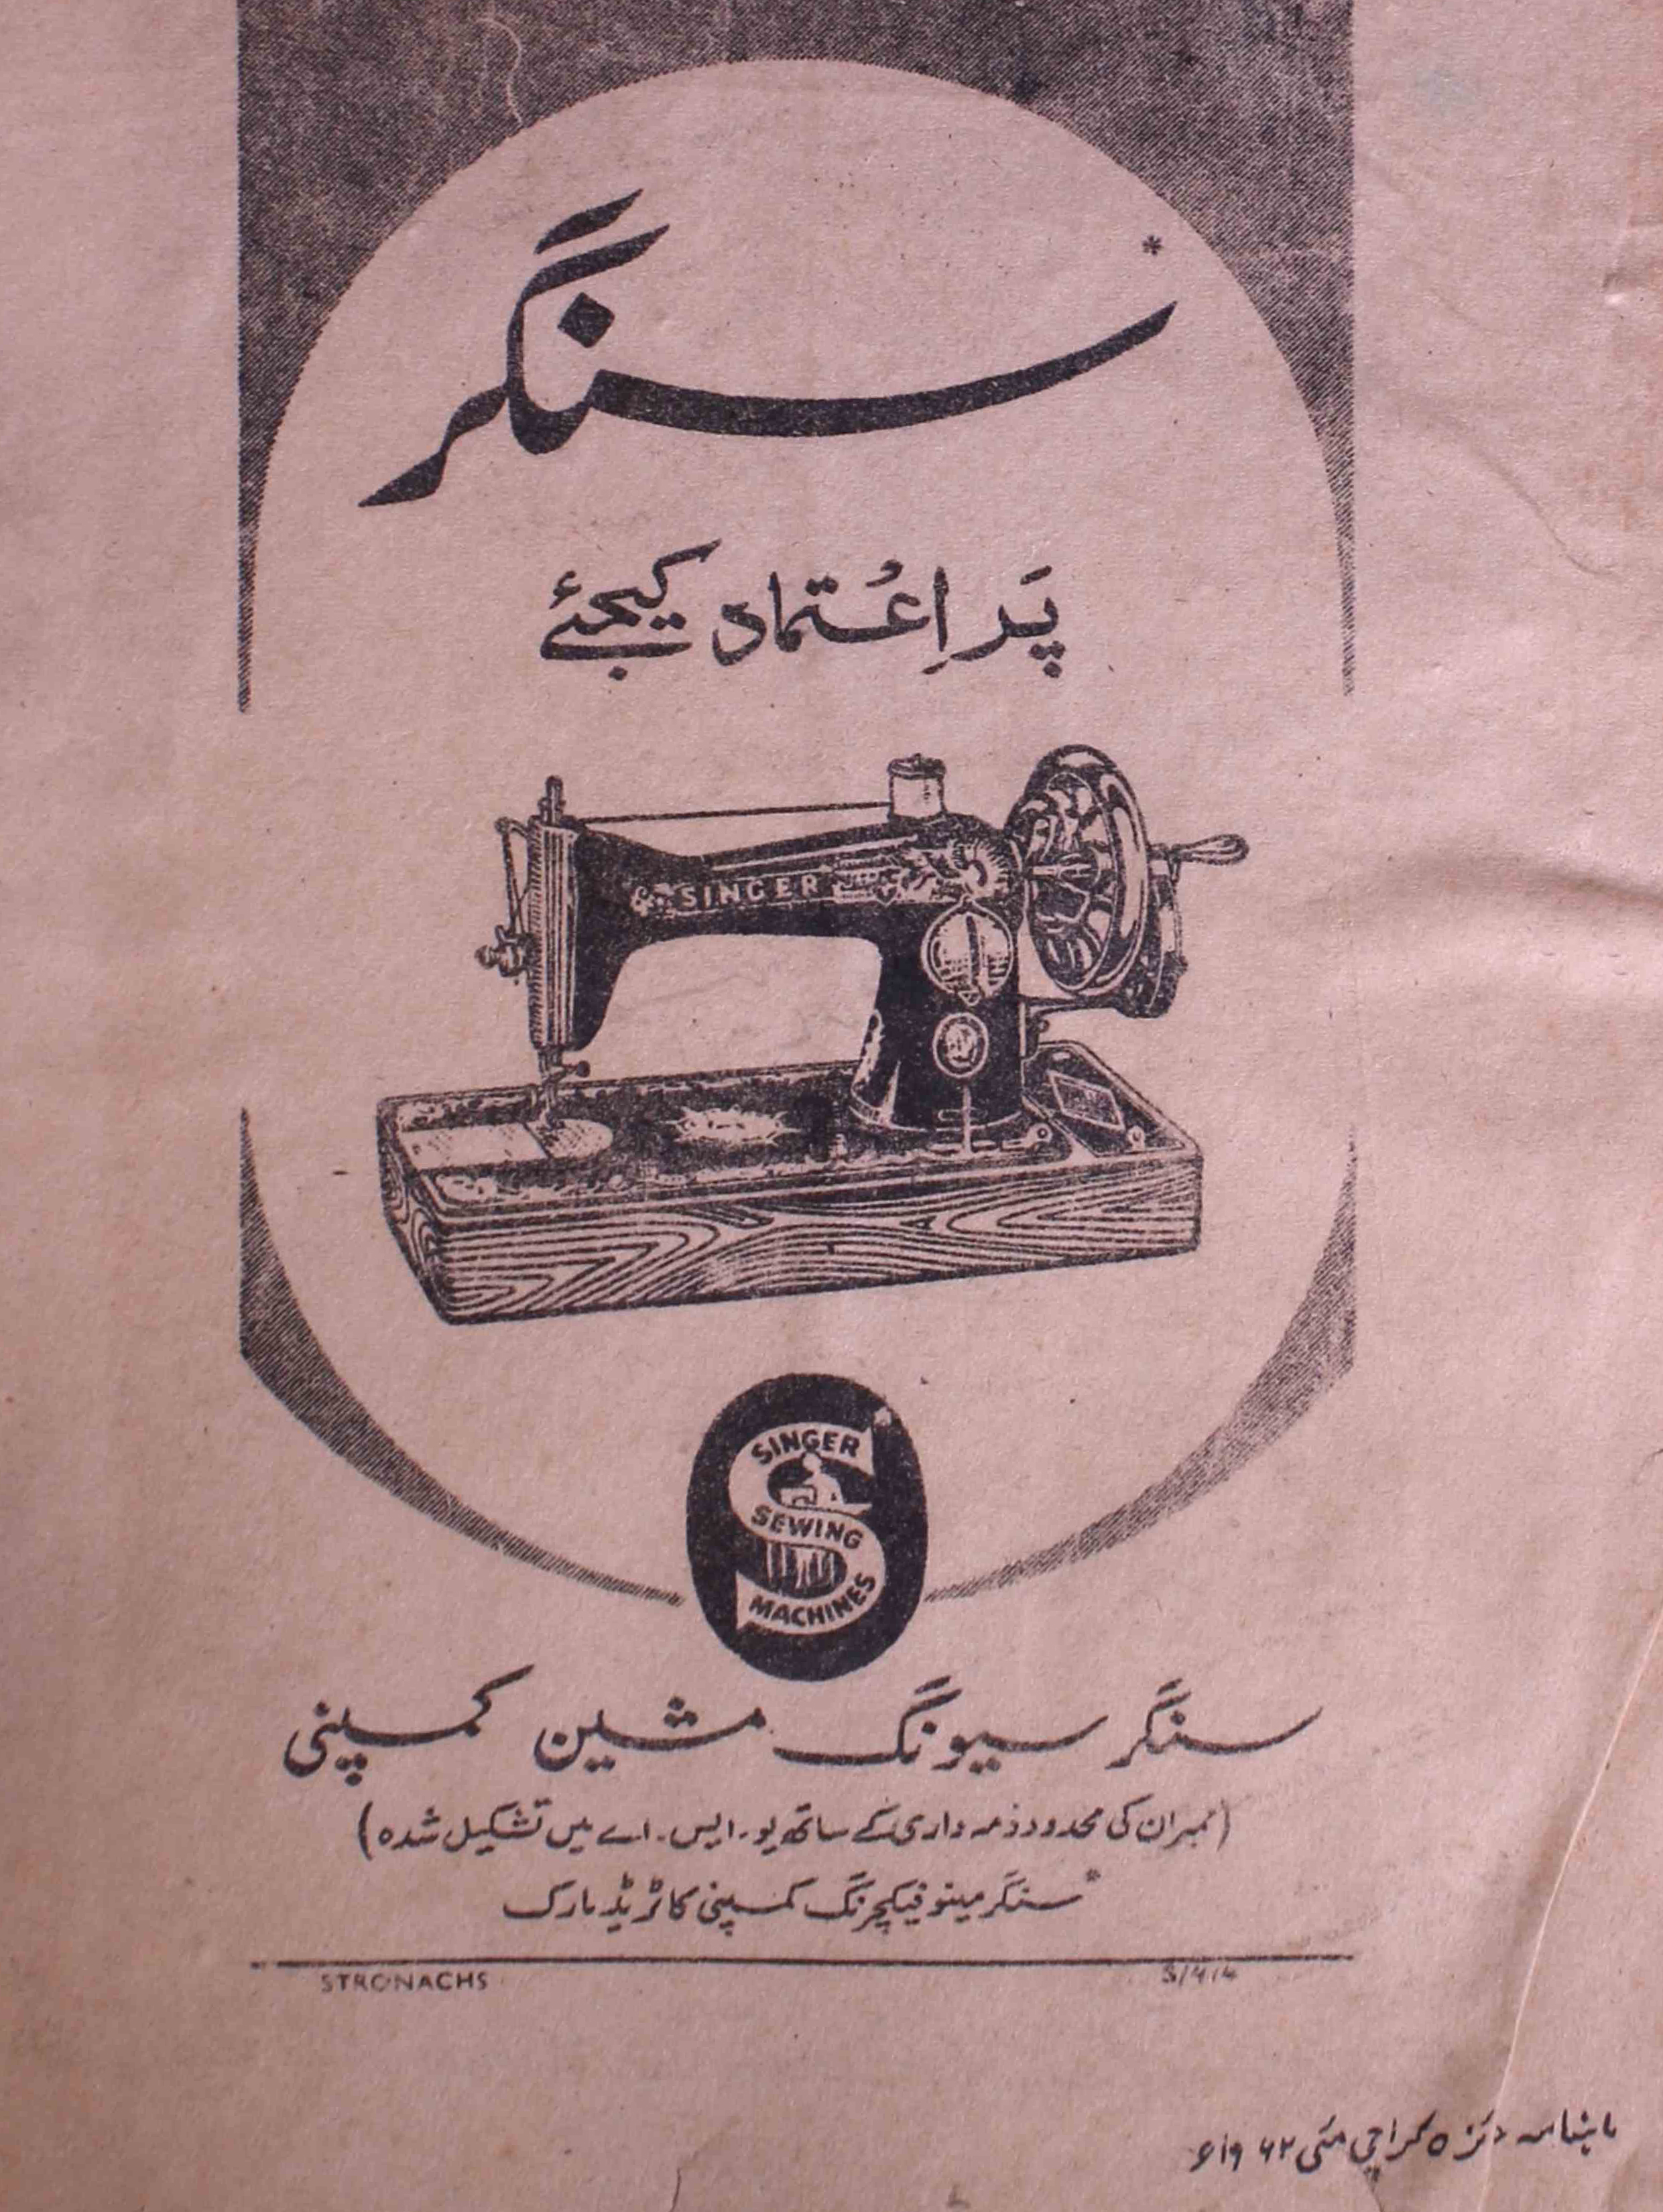 سنگر*
پَر اِعتُماد کیجئے
SINGER
SINGER
SEWING
MACHINES
سنگر سیونگ مشین کمپنی
(ممبران کی محدود ذمہ داری کے ساتھ یو۔ ایس۔ اے میں تشکیل شدہ)
*سنگر مینوفیکچرنگ کمپنی کا ٹریڈ مارک
STRONACHS
کراچی مئی ۱۹۶۲ء